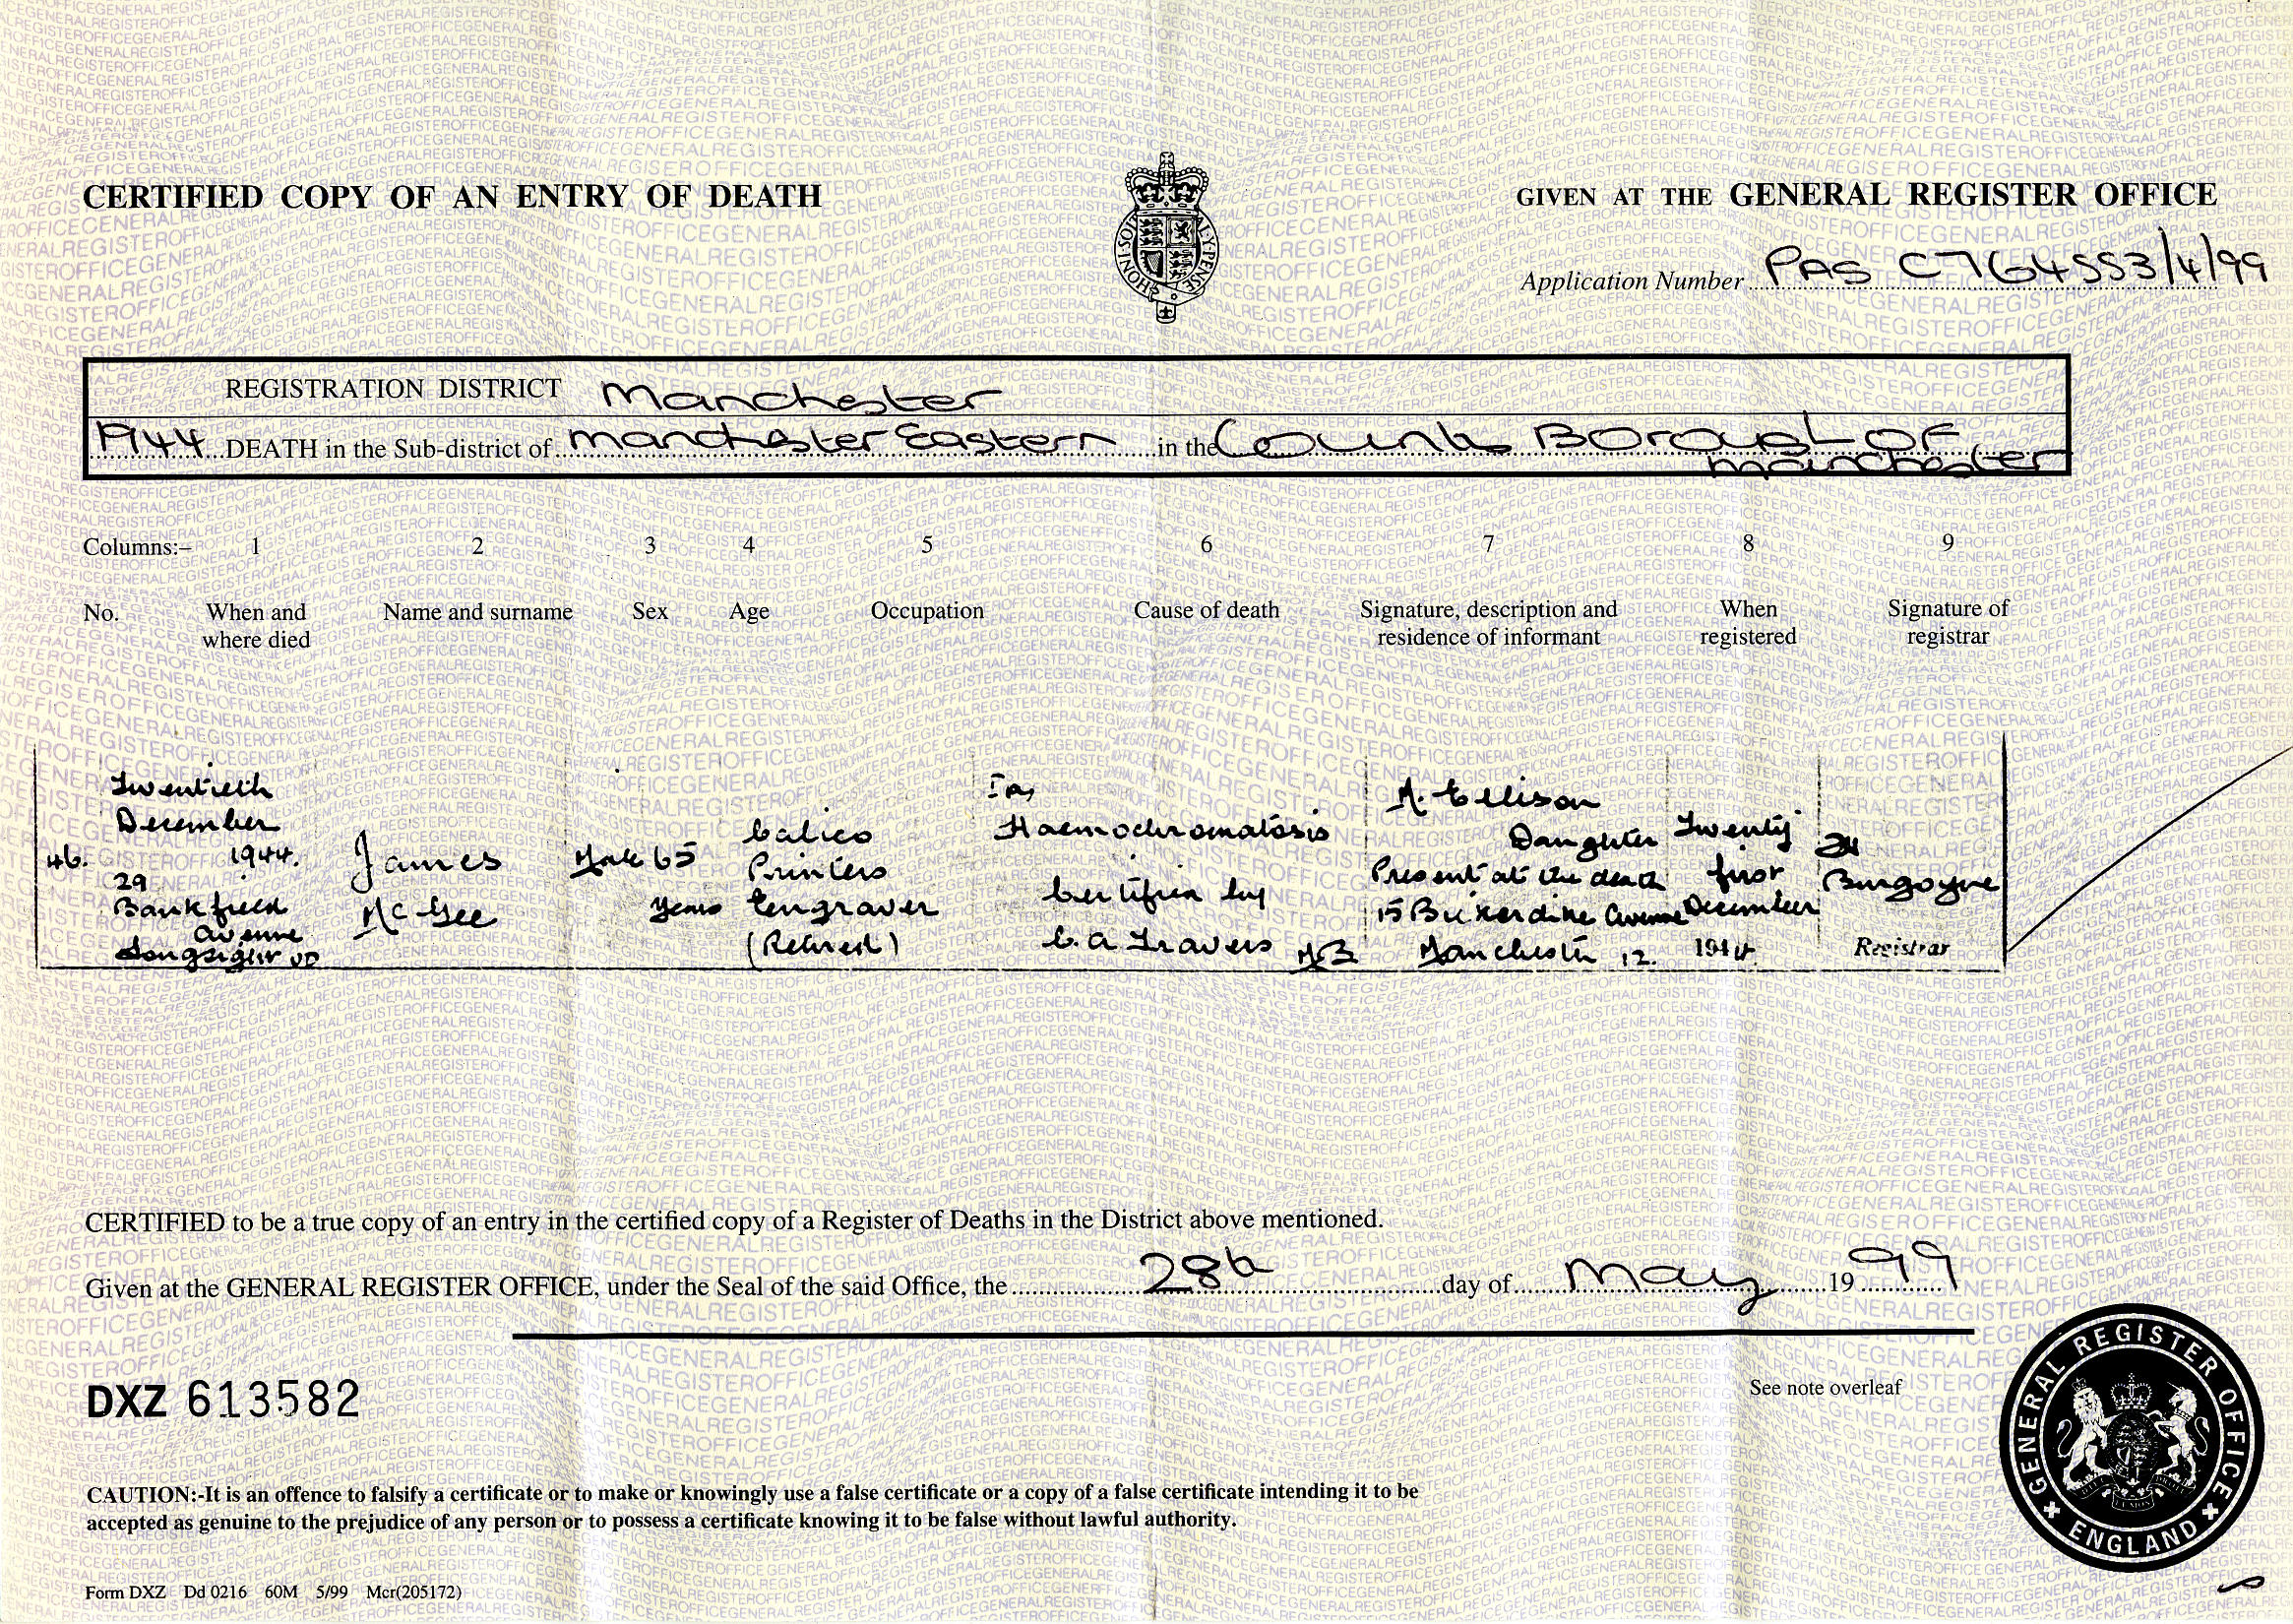 CERTIFIED COPY OF AN ENTRY OF DEATH
GIVEN AT THE GENERAL REGISTER OFFICE
HONI·SOIT Y·PENSE
Application Number PAS C764553/4/99
REGISTRATION DISTRICT Manchester
1944 DEATH in the Sub-district of Manchester Eastern in the County Borough of
Manchester
Columns:– 1 2 3 4 5 6 7 8 9
No. When and where died Name and surname Sex Age Occupation Cause of death Signature, description and residence of informant When registered Signature of registrar
46.
Twentieth
December
1944.
29
Bankfield
Avenue
Longsight UD
James
McGee
Male
65
years
Calico
Printers
Engraver
(Retired)
Ia,
Haemochromatosis
Certified by
C. A Travers MB
A. Ellison
Daughter
Present at the death
15 Bickerdike Avenue
Manchester 12.
Twenty
first
December
1944.
Burgoyne
Registrar
CERTIFIED to be a true copy of an entry in the certified copy of a Register of Deaths in the District above mentioned.
Given at the GENERAL REGISTER OFFICE, under the Seal of the said Office, the 28th day of May 1999
DXZ 613582
See note overleaf
GENERAL REGISTER OFFICE
ENGLAND
CAUTION:-It is an offence to falsify a certificate or to make or knowingly use a false certificate or a copy of a false certificate intending it to be
accepted as genuine to the prejudice of any person or to possess a certificate knowing it to be false without lawful authority.
Form DXZ Dd 0216 60M 5/99 Mcr(205172)